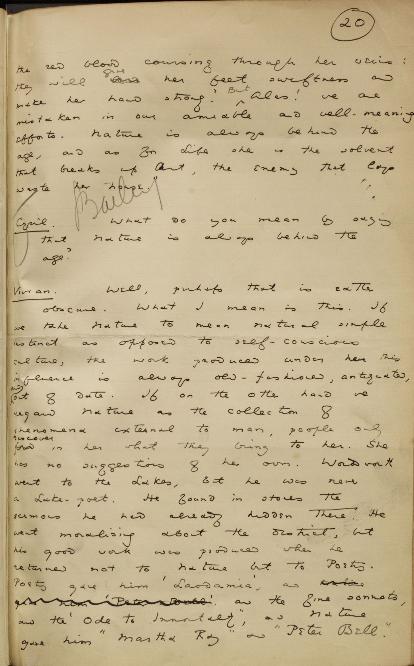 20
the red blood coursing through her veins:
they will give her feet swiftness and
make her hand strong. But Alas! we are
mistaken in our amiable and well-meaning
efforts. Nature is always behind the
age, and as for Life she is the solvent
that breaks up Art, the enemy that lays
waste her house."
Bailey
Cyril. What do you mean by saying
that Nature is always behind the
age?
Vivian. Well, perhaps that is rather
obscure. What I mean is this. If
we take Nature to mean natural simple
instinct as opposed to self-conscious
culture, the work produced under her this
influence is always old-fashioned, antiquated,
and out of date. If on the other hand we
regard Nature as the collection of
phenomena external to man, people only
discover in her what they bring to her. She
has no suggestions of her own. Wordsworth
went to the Lakes, but he was never
a Lake-poet. He found in stones the
sermons he had already hidden there. He
went moralising about the district, but
his good work was produced when he
returned not to Nature but to Poetry.
Poetry gave him 'Laodamia', and
gave him 'Peter Bell'. and the fine sonnets,
and the 'Ode to Immortality', and Nature
gave him "Martha Ray" and "Peter Bell."